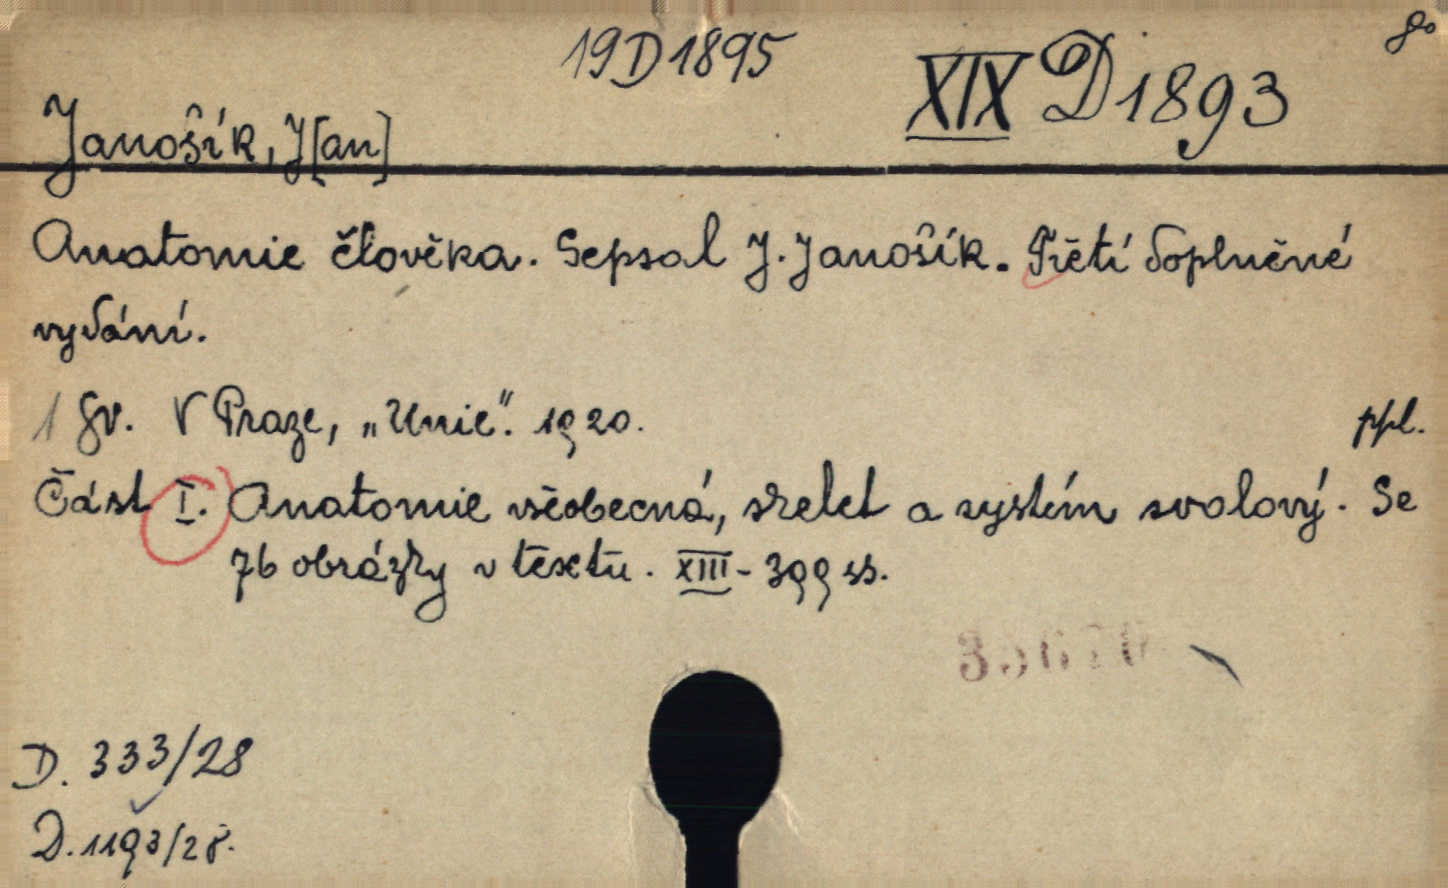 19D1895 XIX D1893 8°
Janošík, J[an]
Anatomie člověka. Sepsal J. Janošík. Třetí doplněné
vydání.
1 sv. V Praze, „Unie“. 1920. ppl.
Část I. Anatomie všeobecná, skelet a systém svalový. Se
76 obrázky v textu. XIII - 399 ss.
D. 333/28
D. 1193/28.